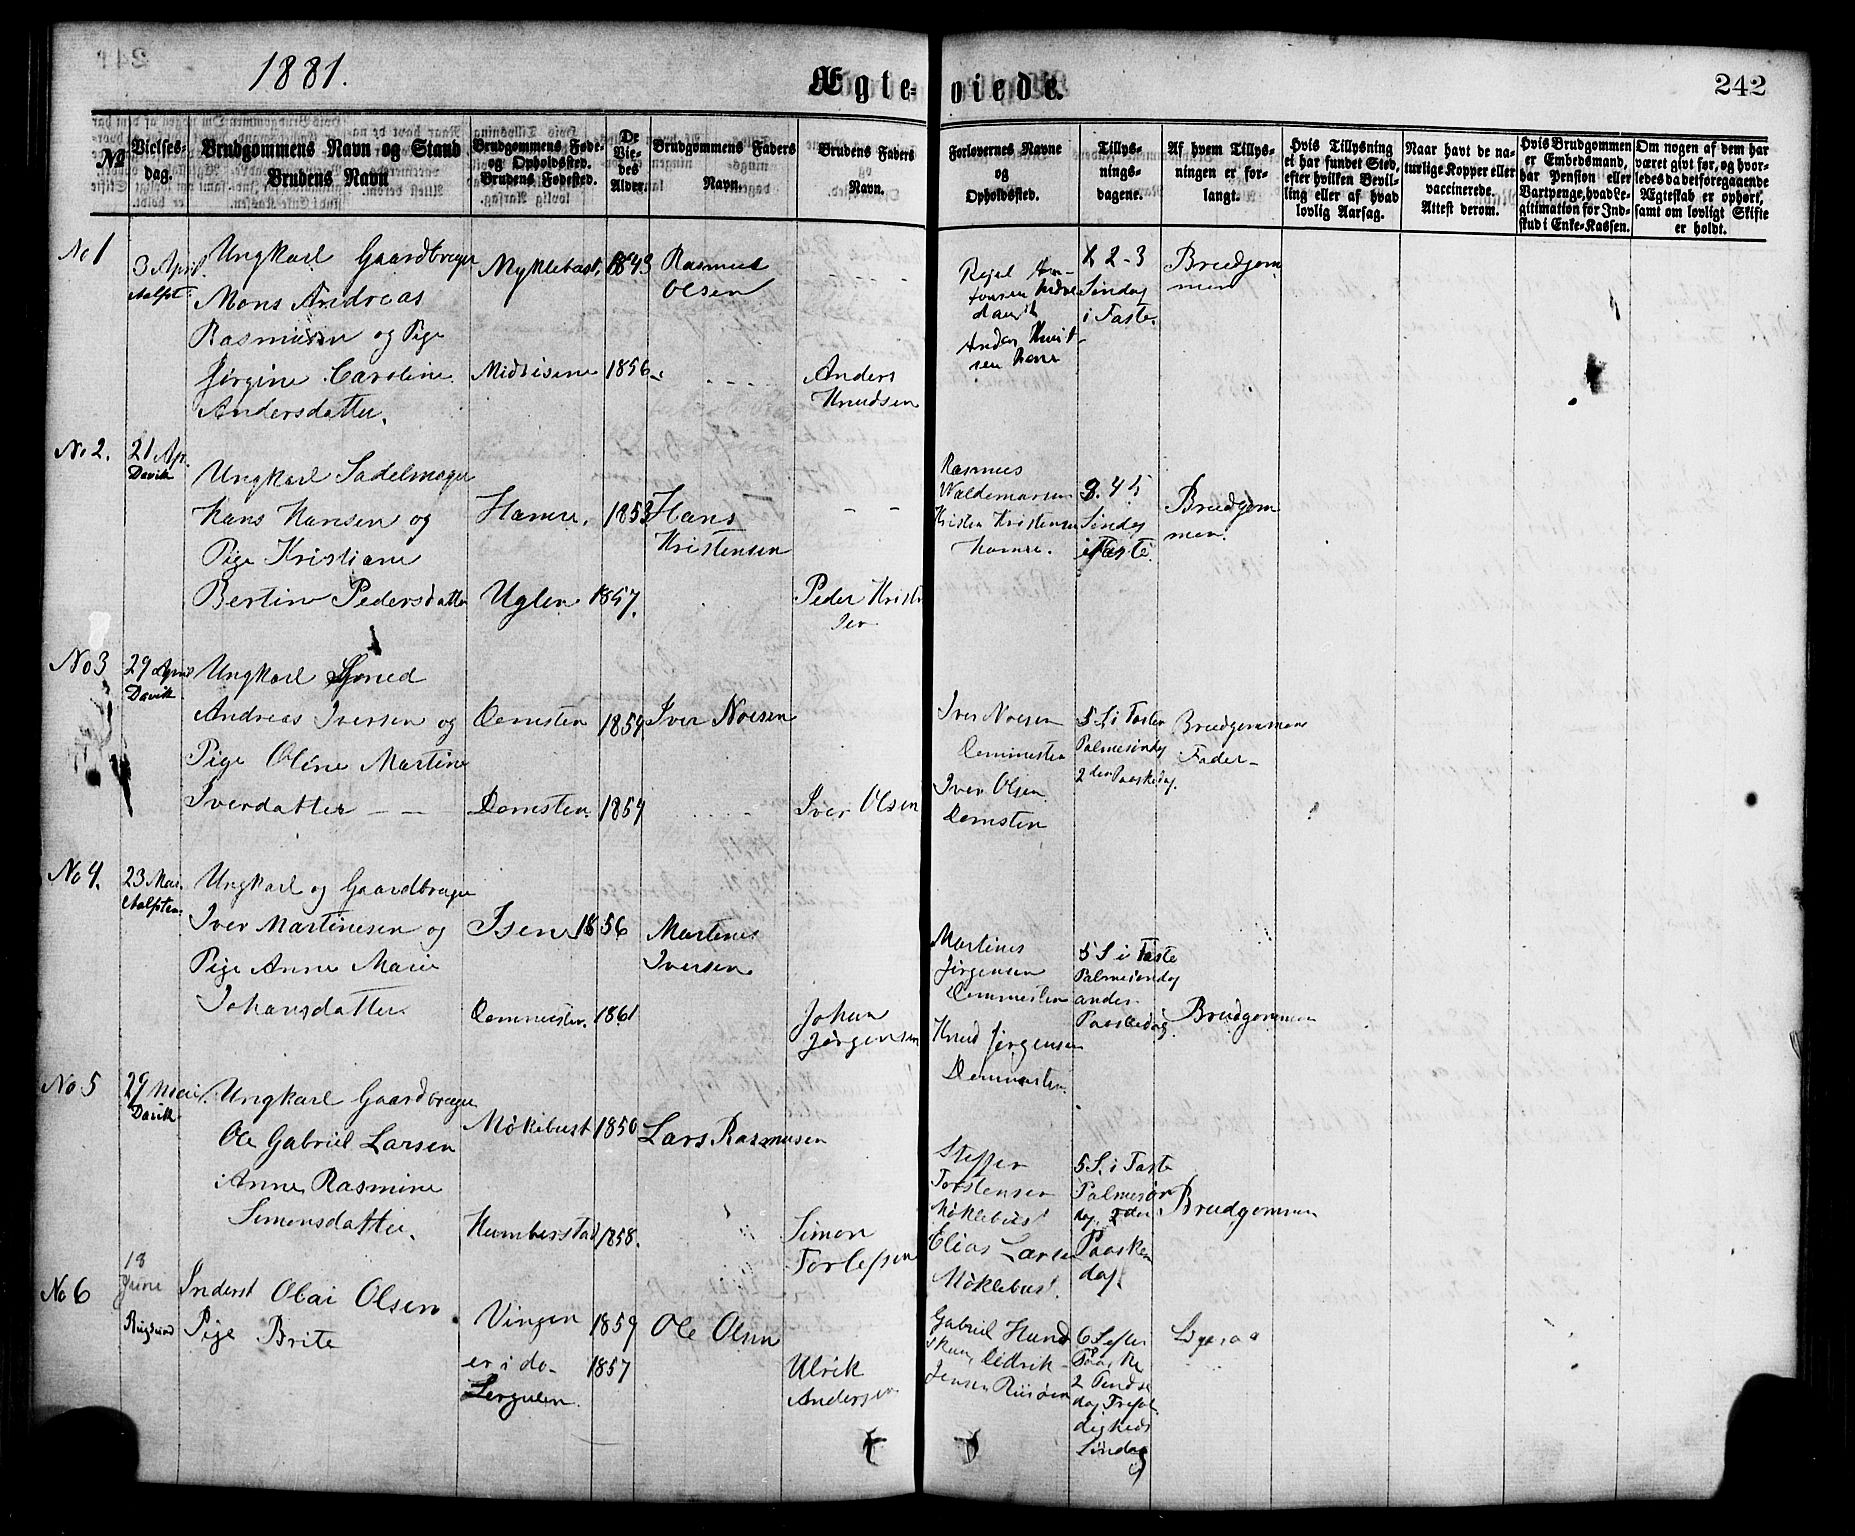 1881.
Ægte-viede.
242
№
Vielses-dag.
Brudgommens Navn og Stand
Brudens Navn
Brudgommens Føde- og Opholdssted.
Brudens Fødested.
De Vie-des Alder.
Brudgommens Faders Navn.
Brudens Faders Navn.
Forlovernes Navne og Opholdssted.
Tillys-nings-dagene.
Af hvem Tillys-ningen er for-langt.
Hvis Tillysning ei har fundet Sted, efter hvilken Bevil-ling eller af hvad lovlig Aarsag.
Naar havt de na-turlige Kopper eller vaccinerede. Attest derom.
Hvis Brudgommen er Embedsmand, har Pension eller Vartpenge, hvad Le-gitimation for Ind-skud i Enke-Kassen.
Om nogen af dem har været givt før, og hvor-ledes da det foregaaende Ægteskab er ophørt, samt om lovligt Skifte er holdt.
No 1
3 April
Aalfot
Ungkarl Gaardbruger
Mons Andreas
Rasmussen og Pige
Jørgine Caroline
Andersdatter.
Myklebust, 1843
Midtisene 1856
Rasmus
Olsen
Anders
Knudsen
1 2-3
Søndag
i Faste.
Brudgom
men
No 2.
21 Ap.
Davik
Ungkarl Sadelmager
Hans Hansen og
Pige Kristiane
Bertine Pedersdatter
Hamre. 1853
Uglen 1857.
Hans
Kristensen
Peder Krist
sen
Rasmus
Waldemarsen
Kristen Kristensen
Hamre.
3. 4 5
Søndag
i Faste
Brudgom
men.
No 3
29 April
Davik
Ungkarl
Andreas Iversen og
Pige Oline Martine
Iverdatter
Domsten 1859
Domsten. 1859
Iver Noesen
Iver Olsen
Iver Noesen
Domмesten
Iver Olsen
Domsten
5 S. i Fasten
Palmesøndag
2den Paaskedag.
Brudgommens
Fader
No 4.
23 Mai.
Aalfoten.
Ungkarl og Gaardbruger
Iver Martinusen og
Pige Anne Marie
Johansdatter.
Isene 1856
Dommesten. 1861
Martinus
Iversen
Johan
Jørgensen
Martinus
Jørgensen
Dommesten
Knud Jørgensen
Dommesten.
5 S i Faste
Palmesøndag
anden
Paaskedag.
Brudgommen
No 5
29 Mai
Davik
Ungkarl Gaardbruger
Ole Gabriel Larsen
Anne Rasmine
Simonsdatter.
Møklebust 1850
Humberstad 1858.
Lars Rasmusen
Simon
Torlefsen
Steffen
Torstensen
Møklebust
Elias Larsen
Møklebust.
5 S. i Faste
Palmesøn
dag. 2den
Paaske
dag.
Brudgommen
No 6
18
June
Rugsund
Inderst Olai Olsen
Pige Brite
Vingen 1859
er i do 1857
Ole Olsen
Ulrik
Andersen
Gabriel Hund
Jensen
6 S efter
Paaske
2 Pindse
dag Trefol
digheds
Søndag
Ligesaa